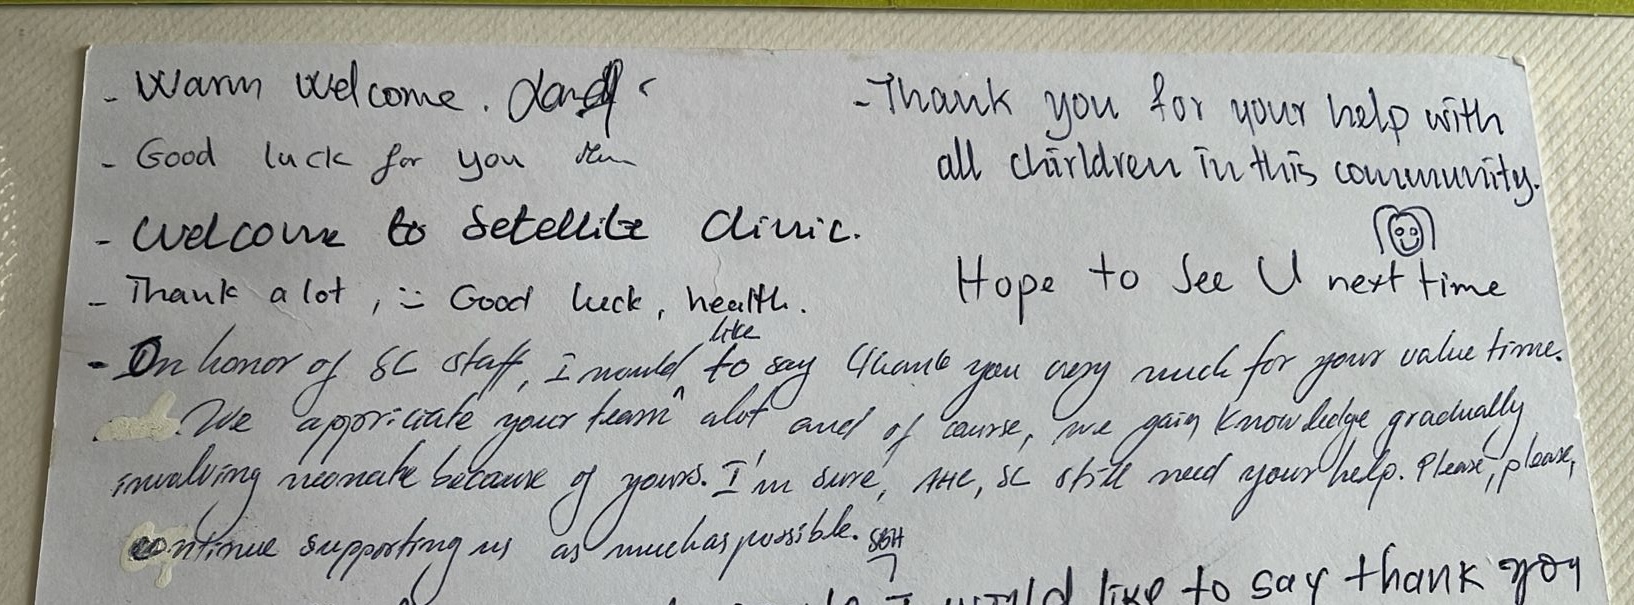 - Warm Welcome.
- Good luck for you
- Welcome to Setellite Clinic.
- Thank a lot, :- Good luck, health.
- Thank you for your help with
all chirldren in this community.
Hope to See U next time
- On honor of SC staff, I would like to say thank you very much for your value time.
We appriciate your team alot and of course, we gain knowledge gradually
involving neonate because of yours. I'm sure, AHC, SC still need your help. Please, please,
continue supporting us as much as possible.
I would like to say thank you